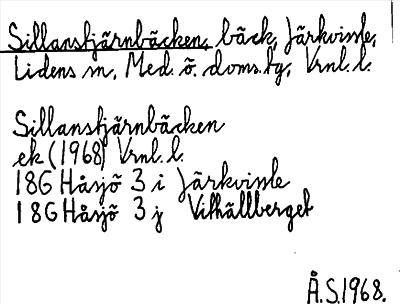 Sillanstjärnbäcken, bäck, Järkvissle,
Lidens sn, Med. ö. doms.tg, Vrnl. l.
Sillanstjärnbäcken
ek (1968) Vrnl. l.
18G Håsjö 3 i Järkvissle
18G Håsjö 3 j Vithällberget
Å.S. 1968.